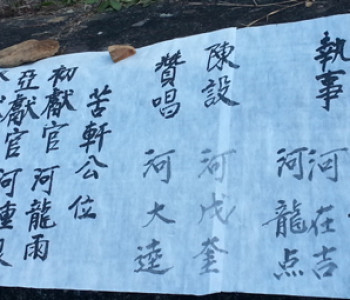 執事 河在吉
河龍点
陳設 河成奎
贊唱 河大逵
苦軒公位
初獻官 河龍雨
亞獻官 河重